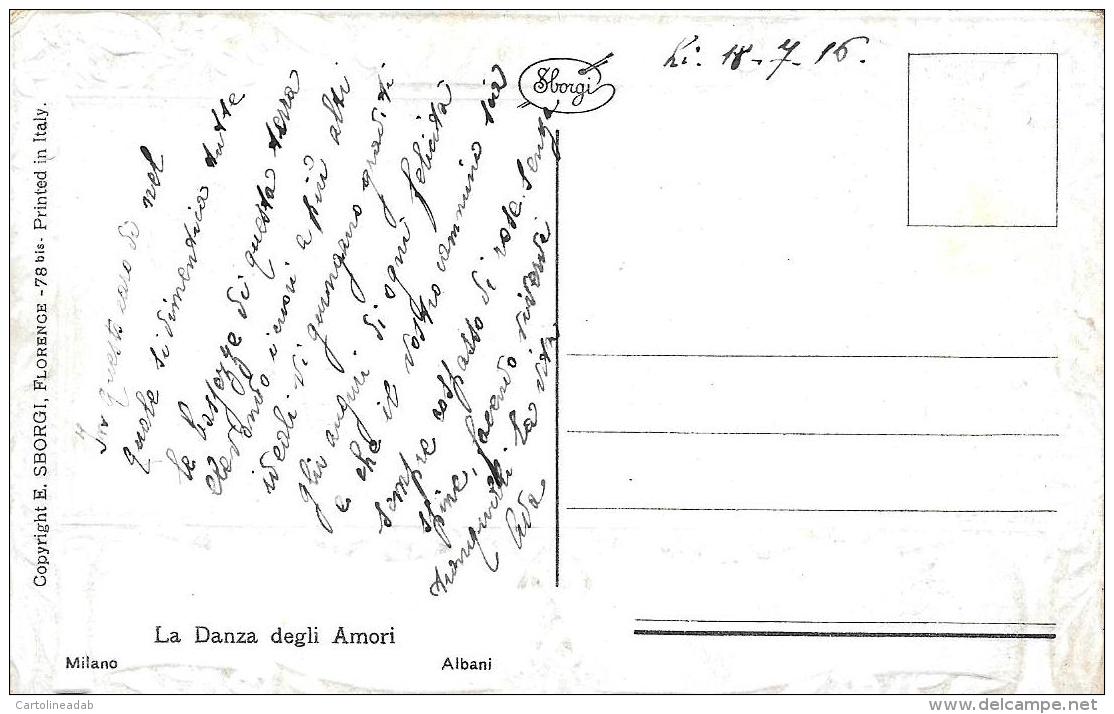 Li. 18-7-16.
Sborgi
In questo caro dì nel
quale si dimentica tutte
le bassezze di questa terra
elevando i cuori a più alti
ideali vi giungano graditi
gli auguri di ogni felicità
e che il vostro cammino sia
sempre cosspasso di rose senza
spine, facendo vivervi
tranquilli la vita
Ada
Copyright E. SBORGI, FLORENCE - 78 bis - Printed in Italy.
La Danza degli Amori
Milano
Albani
Cartolineadab
delcampe.net